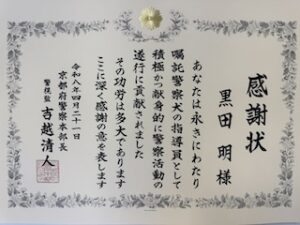 感謝状
黒田 明 様
あなたは永きにわたり
嘱託警察犬の指導員として
積極かつ献身的に警察活動の
遂行に貢献されました
その功労は多大であります
ここに深く感謝の意を表します
令和八年四月二十一日
京都府警察本部長
警視監 吉越清人